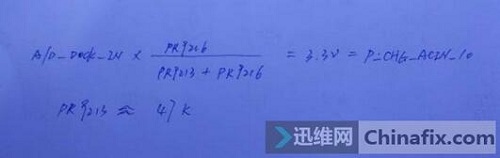 A/D_Dock_IN × PR9216 / PR9213 + PR9216 = 3.3V = P_CHG_ACIN_10
PR9213 ≈ 47K
迅维网 Chinafix.com